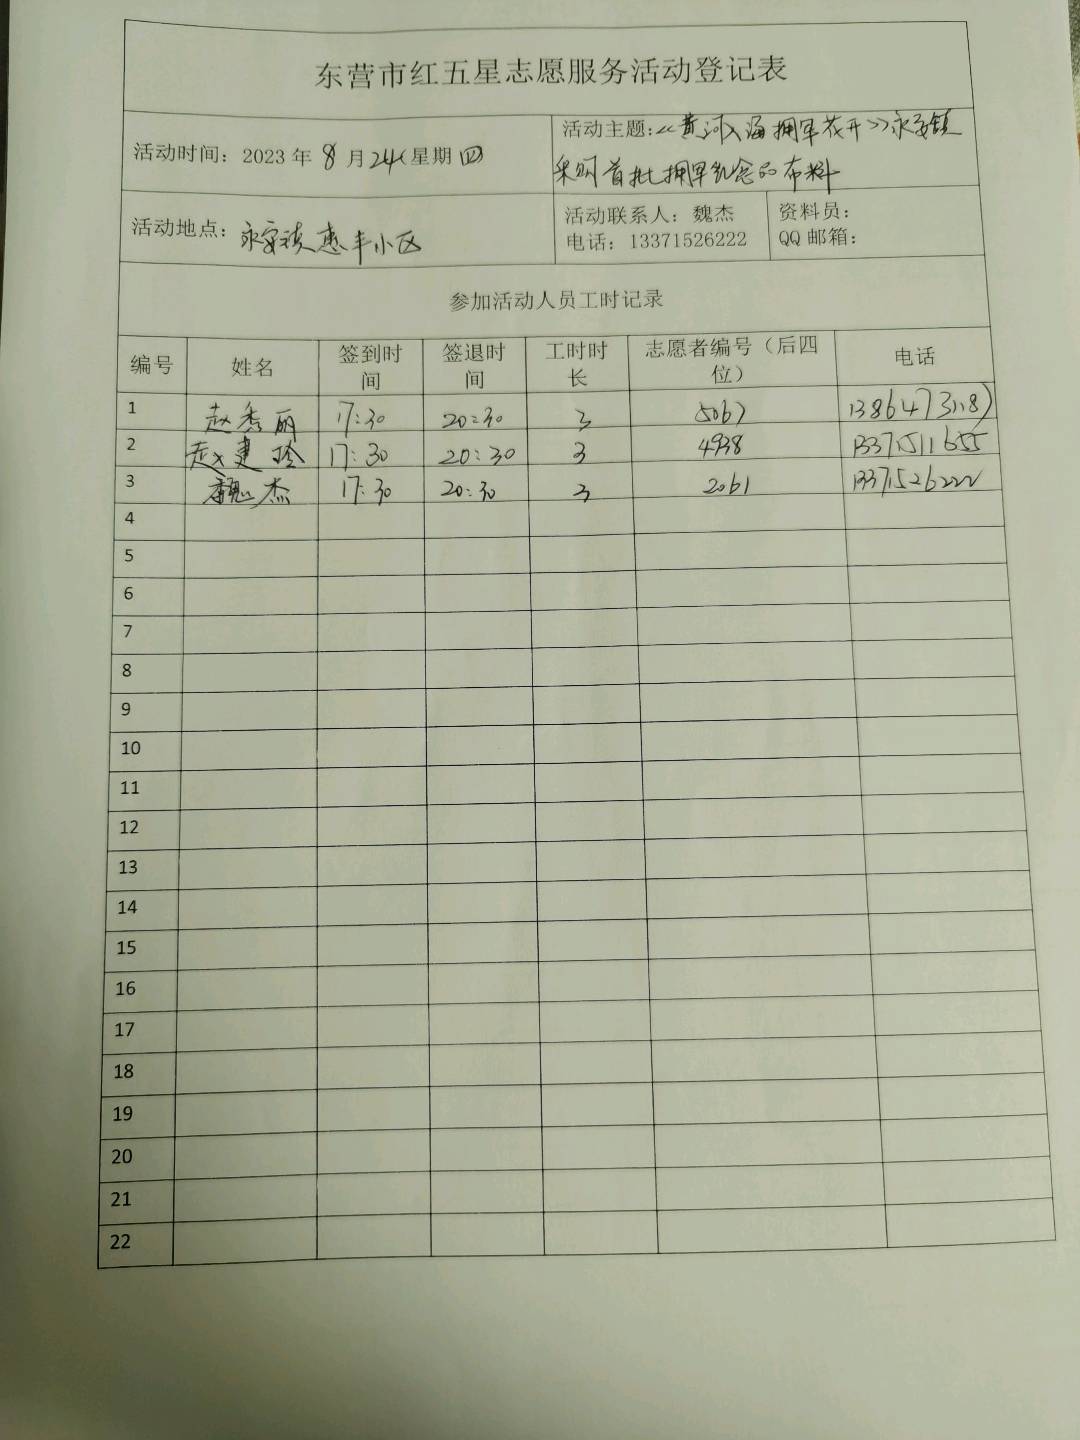 东营市红五星志愿服务活动登记表
活动时间：2023年8月24(星期四
活动主题：<<黄河入海拥军花开>>永安镇
采购首批拥军纪念的布料
活动地点：永安镇惠丰小区
活动联系人：魏杰
电话：13371526222
资料员：
QQ邮箱：
参加活动人员工时记录
编号 姓名 签到时间 签退时间 工时时长 志愿者编号（后四位） 电话
1 赵秀丽 17:30 20:30 3 5067
2 赵建玲 17:30 20:30 3 4938 13371511655
3 魏杰 17:30 20:30 3 2061 13371526222
4
5
6
7
8
9
10
11
12
13
14
15
16
17
18
19
20
21
22